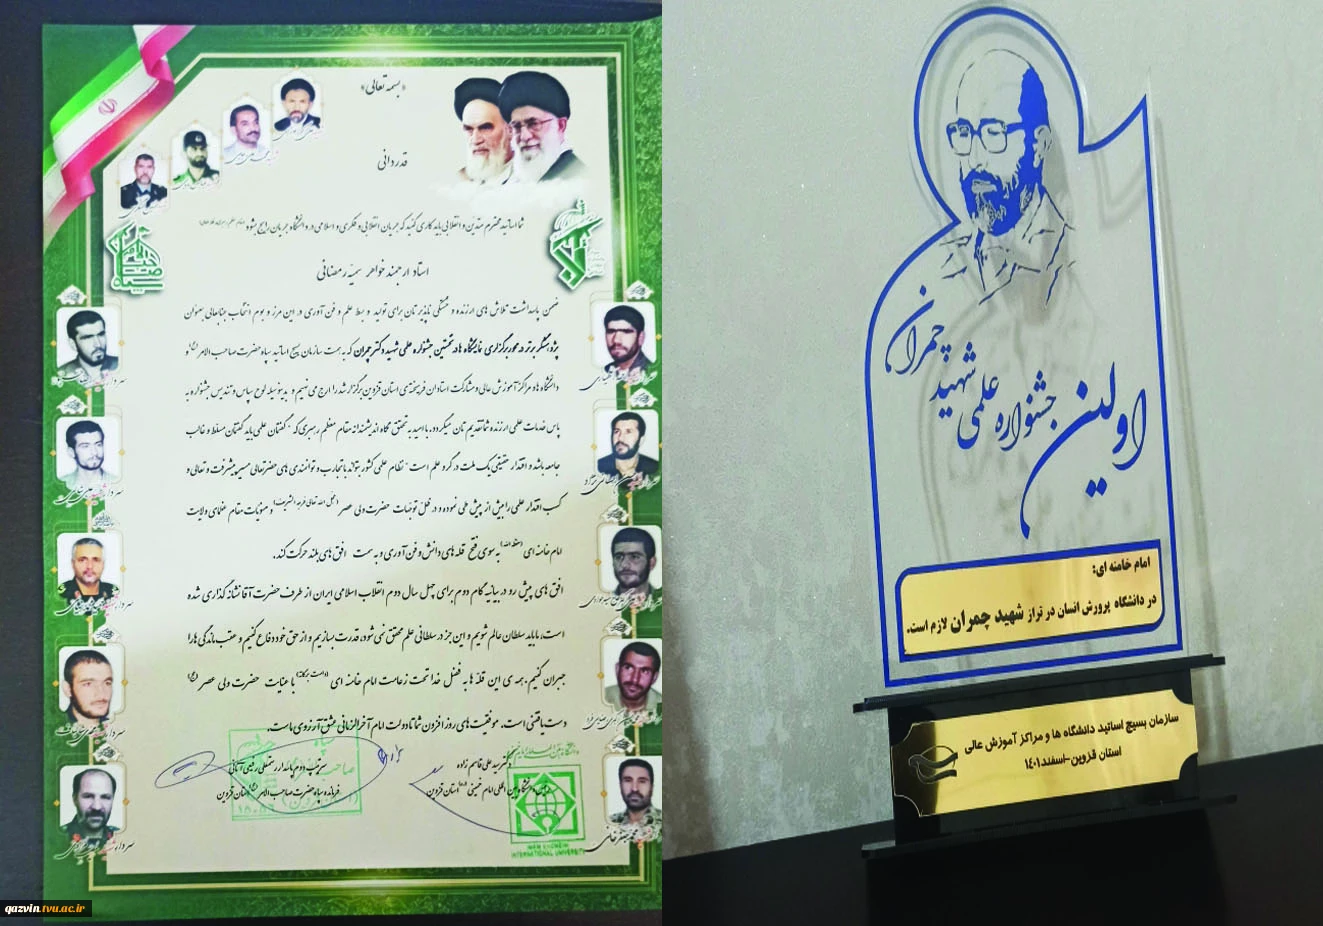 «بسمه تعالی»
قدردانی
شما اساتید محترم متدیّن و انقلابی باید کاری کنید که جریان انقلابی و فکری و اسلامی در دانشگاه جریان رایج بشود
استاد ارجمند خواهر سمیّه رمضانی
ضمن پاسداشت تلاش های ارزنده و خستگی ناپذیرتان برای تولید و بسط علم و فن آوری در این مرز و بوم انتخاب جنابعالی بعنوان
پژوهشگر برتر در محور برگزاری نمایشگاه ها در نخستین جشنواره علمی شهید دکتر چمران که به همت سازمان بسیج اساتید سپاه حضرت صاحب الامر(عج) و
دانشگاه ها و مراکز آموزش عالی و مشارکت استادان فرهیخته ی استان قزوین برگزار شد را ارج می نهیم و بدینوسیله لوح سپاس و تندیس جشنواره به
پاس خدمات علمی ارزنده شما تقدیم تان میگردد. با امید به تحقق نگاه اندیشمندانه مقام معظم رهبری که "گفتمان علمی باید گفتمان مسلط و غالب
جامعه باشد و اقتدار حقیقی یک ملت در گرو علم است" نظام علمی کشور بتواند با تجارب و توانمندی های حضرتعالی مسیر پیشرفت و تعالی و
کسب اقتدار علمی را بیش از پیش طی نموده و در ظلّ توجهات حضرت ولی عصر (عجل الله تعالی فرجه الشریف) و منویات مقام عظمای ولایت
امام خامنه ای (حفظه الله) به سوی فتح قله های دانش و فن آوری و به سمت افق های بلند حرکت کند.
افق های پیش رو در بیانیه گام دوم برای چهل سال دوم انقلاب اسلامی ایران از طرف حضرت آقا نشانه گذاری شده
است، ما باید سلطان عالم شویم و این جز در سلطانی علم محقق نمی شود، قدرت بسازیم و از حق خود دفاع کنیم و عقب ماندگی ها را
جبران کنیم. همه ی این قله ها به فضل خدا تحت زعامت امام خامنه ای (دامت برکاته) با عنایت حضرت ولی عصر (عج)
دست یافتنی است. موفقیت های روز افزون شما تا دولت امام آخرالزمانی عشق آرزوی ماست.
دکتر سید علی قاسم زاده
رئیس دانشگاه بین المللی امام خمینی (ره) استان قزوین
سرتیپ دوم پاسدار رستمعلی رفیعی آتانی
فرمانده سپاه حضرت صاحب الامر (عج) استان قزوین
IMAM KHOMEINI
INTERNATIONAL UNIVERSITY
qazvin.tvu.ac.ir
اولین
جشنواره علمی
شهید
چمران
امام خامنه ای:
در دانشگاه پرورش انسان در تراز شهید چمران لازم است.
سازمان بسیج اساتید دانشگاه ها و مراکز آموزش عالی
استان قزوین-اسفند۱۴۰۱